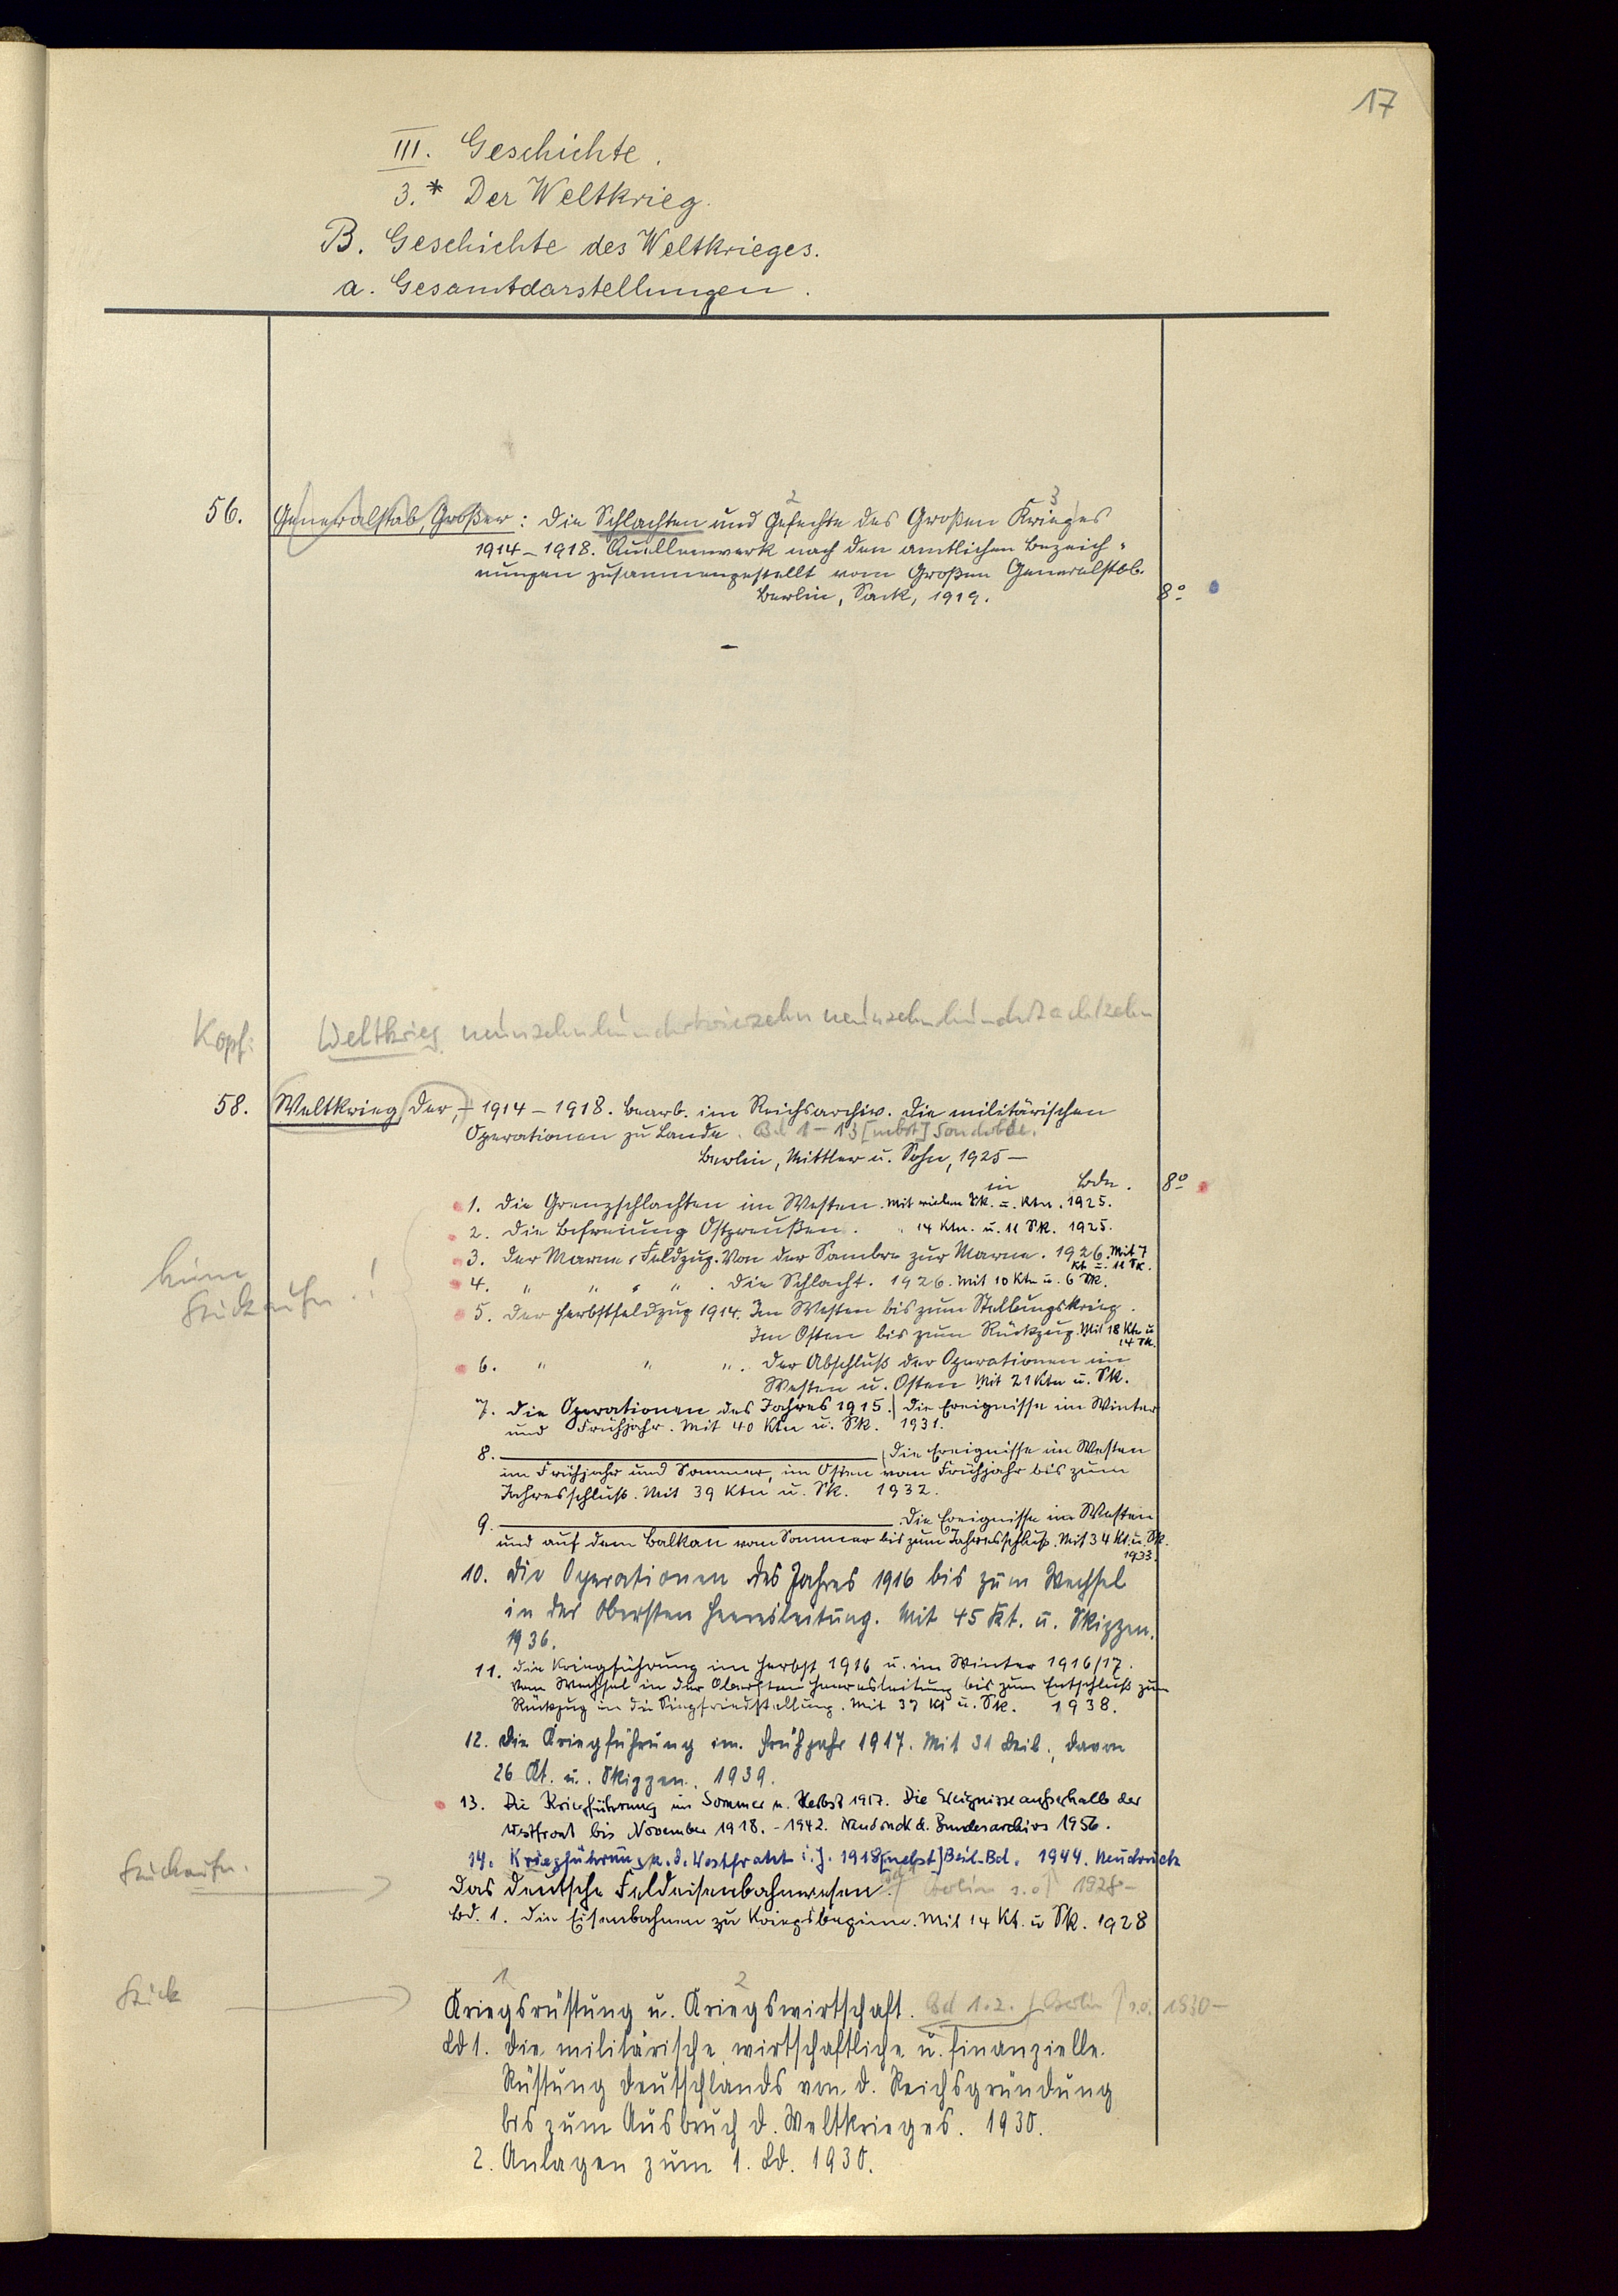 17
III. Geschichte.
3.* Der Weltkrieg.
B. Geschichte des Weltkrieges.
a. Gesamtdarstellungen.
2 3
56. Generalstab, Großer: Die Schlachten und Gefechte des Großen Krieges
1914–1918. Quellenwerk nach den amtlichen Bezeich-
nungen zusammengestellt vom Großen Generalstab.
Berlin, Sack, 1919. 8°
Kopf: Weltkrieg neunzehnhundertvierzehn neunzehnhundertachtzehn
58. Weltkrieg, Der, – 1914–1918. Bearb. im Reichsarchiv. Die militärischen
Operationen zu Lande. Bd 1–13 [nebst] Sonderbde.
Berlin, Mittler u. Sohn, 1925–
in Bdn. 8°
1. Die Grenzschlachten im Westen. Mit vielen Sk. u. Ktn. 1925.
2. Die Befreiung Ostpreußens. " 14 Ktn. u. 11 Sk. 1925.
3. Der Marne-Feldzug. Von der Sambre zur Marne. 1926. Mit 7
Kt. u. 11 Sk.
4. " " " " . Die Schlacht. 1926. Mit 10 Ktn u. 6 Sk.
keine
Stückaufn.!
5. Der Herbstfeldzug 1914. Im Westen bis zum Stellungskrieg.
Im Osten bis zum Rückzug. Mit 18 Ktn u
14 Sk.
6. " " ". Der Abschluß der Operationen im
Westen u. Osten Mit 21 Ktn u. Sk.
7. Die Operationen des Jahres 1915. Die Ereignisse im Winter
und Frühjahr. Mit 40 Ktn u. Sk. 1931.
8. Die Ereignisse im Westen
im Frühjahr und Sommer, im Osten vom Frühjahr bis zum
Jahresschluß. Mit 39 Ktn u. Sk. 1932.
9. Die Ereignisse im Westen
und auf dem Balkan vom Sommer bis zum Jahresschluß. Mit 34 Kt. u. Sk.
1933.
10. Die Operationen des Jahres 1916 bis zum Wechsel
in der Obersten Heeresleitung. Mit 45 Kt. u. Skizzen.
1936.
11. Die Kriegführung im Herbst 1916 u. im Winter 1916/17.
Vom Wechsel in der Obersten Heeresleitung bis zum Entschluß zum
Rückzug in die Siegfriedstellung. Mit 37 Kt u. Sk. 1938.
12. Die Kriegführung im Frühjahr 1917. Mit 31 Beil., davon
26 Kt. u. Skizzen. 1939.
13. Die Kriegführung im Sommer u. Herbst 1917. Die Ereignisse außerhalb der
Westfront bis November 1918. – 1942. Neudruck d. Bundesarchivs 1956.
14. Kriegführung a. d. Westfront i. J. 1918 [nebst] Beil.-Bd. 1944. Neudruck
Stückaufn.
Das deutsche Feldeisenbahnwesen. Berlin s.o. 1928–
Bd. 1. Die Eisenbahnen zu Kriegsbeginn. Mit 14 Kt. u Sk. 1928
1 2
Stück
Kriegsrüstung u. Kriegswirtschaft. Bd 1.2. Berlin s.o. 1930–
Bd 1. Die militärische, wirtschaftliche u. finanzielle
Rüstung Deutschlands von d. Reichsgründung
bis zum Ausbruch d. Weltkrieges. 1930.
2. Anlagen zum 1. Bd. 1930.